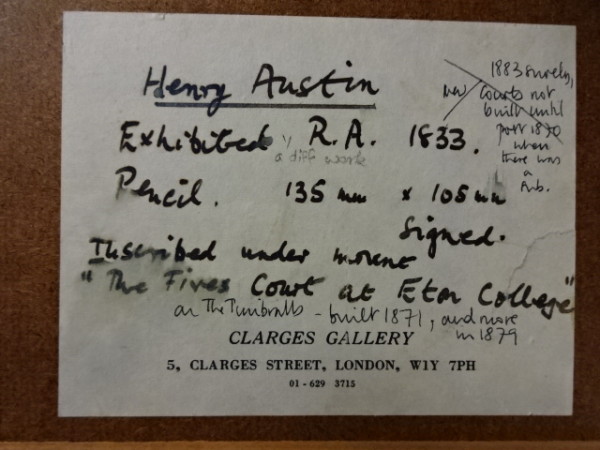 Henry Austin
1883 surely,
Courts not
built until
post 1870
when
there was
a
Pub.
Exhibited R.A. 1833.
a diff work
Pencil. 135 mm x 105 mm
Signed.
Inscribed under mount
"The Fives Court at Eton College"
on The Timbralls - built 1871, and more
in 1879
CLARGES GALLERY
5, CLARGES STREET, LONDON, W1Y 7PH
01-629 3715